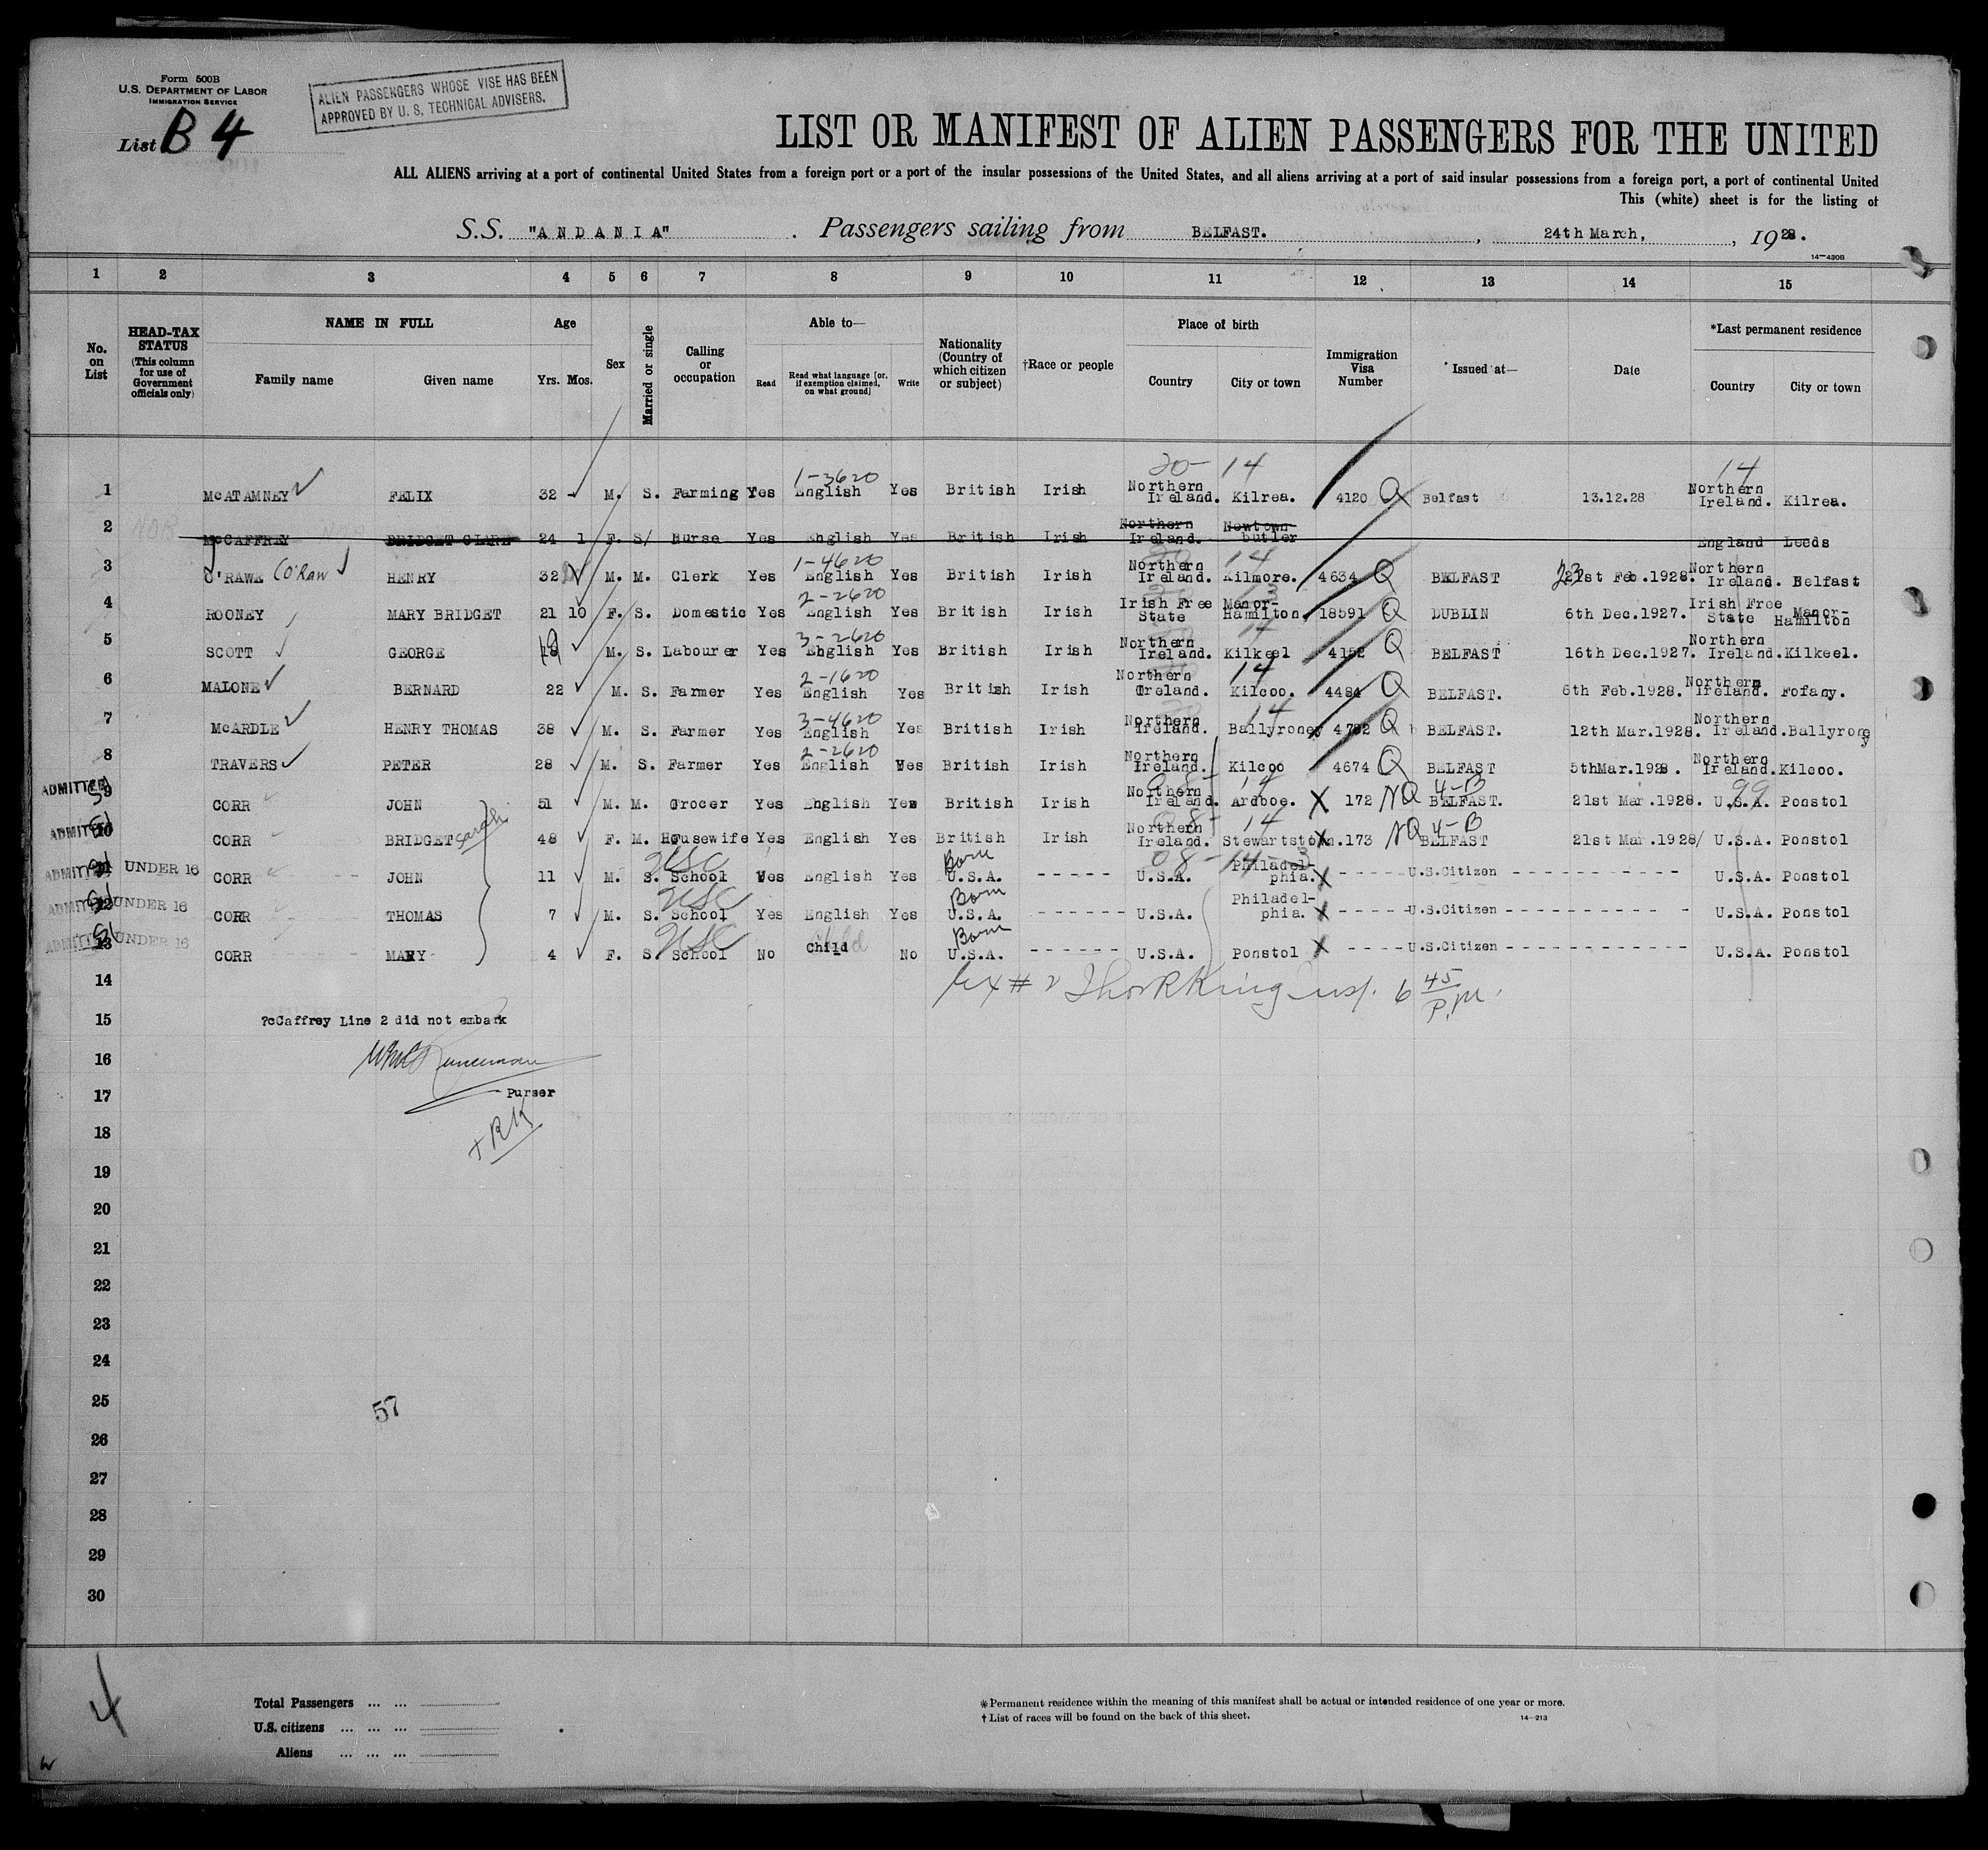 Form 500B
U.S. DEPARTMENT OF LABOR
IMMIGRATION SERVICE
List B 4
ALIEN PASSENGERS WHOSE VISE HAS BEEN
APPROVED BY U. S. TECHNICAL ADVISERS.
LIST OR MANIFEST OF ALIEN PASSENGERS FOR THE UNITED
ALL ALIENS arriving at a port of continental United States from a foreign port or a port of the insular possessions of the United States, and all aliens arriving at a port of said insular possessions from a foreign port, a port of continental United
This (white) sheet is for the listing of
S.S. "ANDANIA" . Passengers sailing from BELFAST. , 24th March, , 1928.
14—430B
1 2 3 4 5 6 7 8 9 10 11 12 13 14 15
No. on List
HEAD-TAX STATUS (This column for use of Government officials only)
NAME IN FULL
Family name Given name
Age
Yrs. Mos.
Sex
Married or single
Calling or occupation
Able to—
Read
Read what language [or, if exemption claimed, on what ground]
Write
Nationality (Country of which citizen or subject)
†Race or people
Place of birth
Country City or town
Immigration Visa Number
Issued at—
Date
*Last permanent residence
Country City or town
1-3620 20- 14 14
1 McATAMNEY FELIX 32 M. S. Farming Yes English Yes British Irish Northern Ireland. Kilrea. 4120 Q Belfast 13.12.28 Northern Ireland. Kilrea.
2 McCAFFREY BRIDGET CLARE 24 1 F. S/ Nurse Yes English Yes British Irish Northern Ireland. Newtown butler England Leeds
1-4620 14
3 O'RAWE (O'Raw HENRY 32 M. M. Clerk Yes English Yes British Irish Northern Ireland. Kilmore. 4634 Q BELFAST 21st Feb.1928. Northern Ireland. Belfast
2-2620 13
4 ROONEY MARY BRIDGET 21 10 F. S. Domestic Yes English Yes British Irish Irish Free State Manor-Hamilton. 18591 Q DUBLIN 6th Dec.1927. Irish Free State Manor-Hamilton
3-2620 14
5 SCOTT GEORGE 19 M. S. Labourer Yes English Yes British Irish Northern Ireland. Kilkeel 4152 Q BELFAST 16th Dec.1927. Northern Ireland. Kilkeel.
2-1620 14
6 MALONE BERNARD 22 M. S. Farmer Yes English Yes British Irish Northern Ireland. Kilcoo. 4484 Q BELFAST. 6th Feb.1928. Northern Ireland. Fofany.
3-4620 14
7 McARDLE HENRY THOMAS 38 M. S. Farmer Yes English Yes British Irish Northern Ireland. Ballyroney 4782 Q BELFAST. 12th Mar.1928. Northern Ireland. Ballyroney
2-2620
8 TRAVERS PETER 28 M. S. Farmer Yes English Yes British Irish Northern Ireland. Kilcoo 4674 Q BELFAST 5thMar.1928. Northern Ireland. Kilcoo.
ADMITTED 9 CORR JOHN 51 M. M. Grocer Yes English Yes British Irish Northern Ireland. 14 Ardboe. X 172 NQ 4-B BELFAST. 21st Mar.1928. 99 U.S.A. Ponstol
ADMITTED 10 CORR BRIDGET Sarah 48 F. M. Housewife Yes English Yes British Irish Northern Ireland. 14 Stewartstown. 173 NQ 4-B BELFAST 21st Mar.1928/ U.S.A. Ponstol
ADMITTED 11 UNDER 16 CORR JOHN 11 M. S. USC School Yes English Yes Born U.S.A. - - - - - U.S.A. Philadel-phia. X - - - - - U.S.Citizen - - - - - U.S.A. Ponstol
ADMITTED 12 UNDER 16 CORR THOMAS 7 M. S. USC School Yes English Yes Born U.S.A. - - - - - - U.S.A. Philadel-phia. X - - - - - U.S.Citizen - - - - - U.S.A. Ponstol
ADMITTED 13 UNDER 16 CORR MARY 4 F. S. USC School No Child No Born U.S.A. - - - - - - U.S.A. Ponstol X - - - - - U.S.Citizen - - - - - U.S.A. Ponstol
14
15 ?cCaffrey Line 2 did not embark
16
17 Purser
+RK
18
19
20
21
22
23
24
25
57
26
27
28
29
30
4
Total Passengers ... ...
U.S. citizens ... ... ...
Aliens ... ... ...
*Permanent residence within the meaning of this manifest shall be actual or intended residence of one year or more.
†List of races will be found on the back of this sheet.
14—213